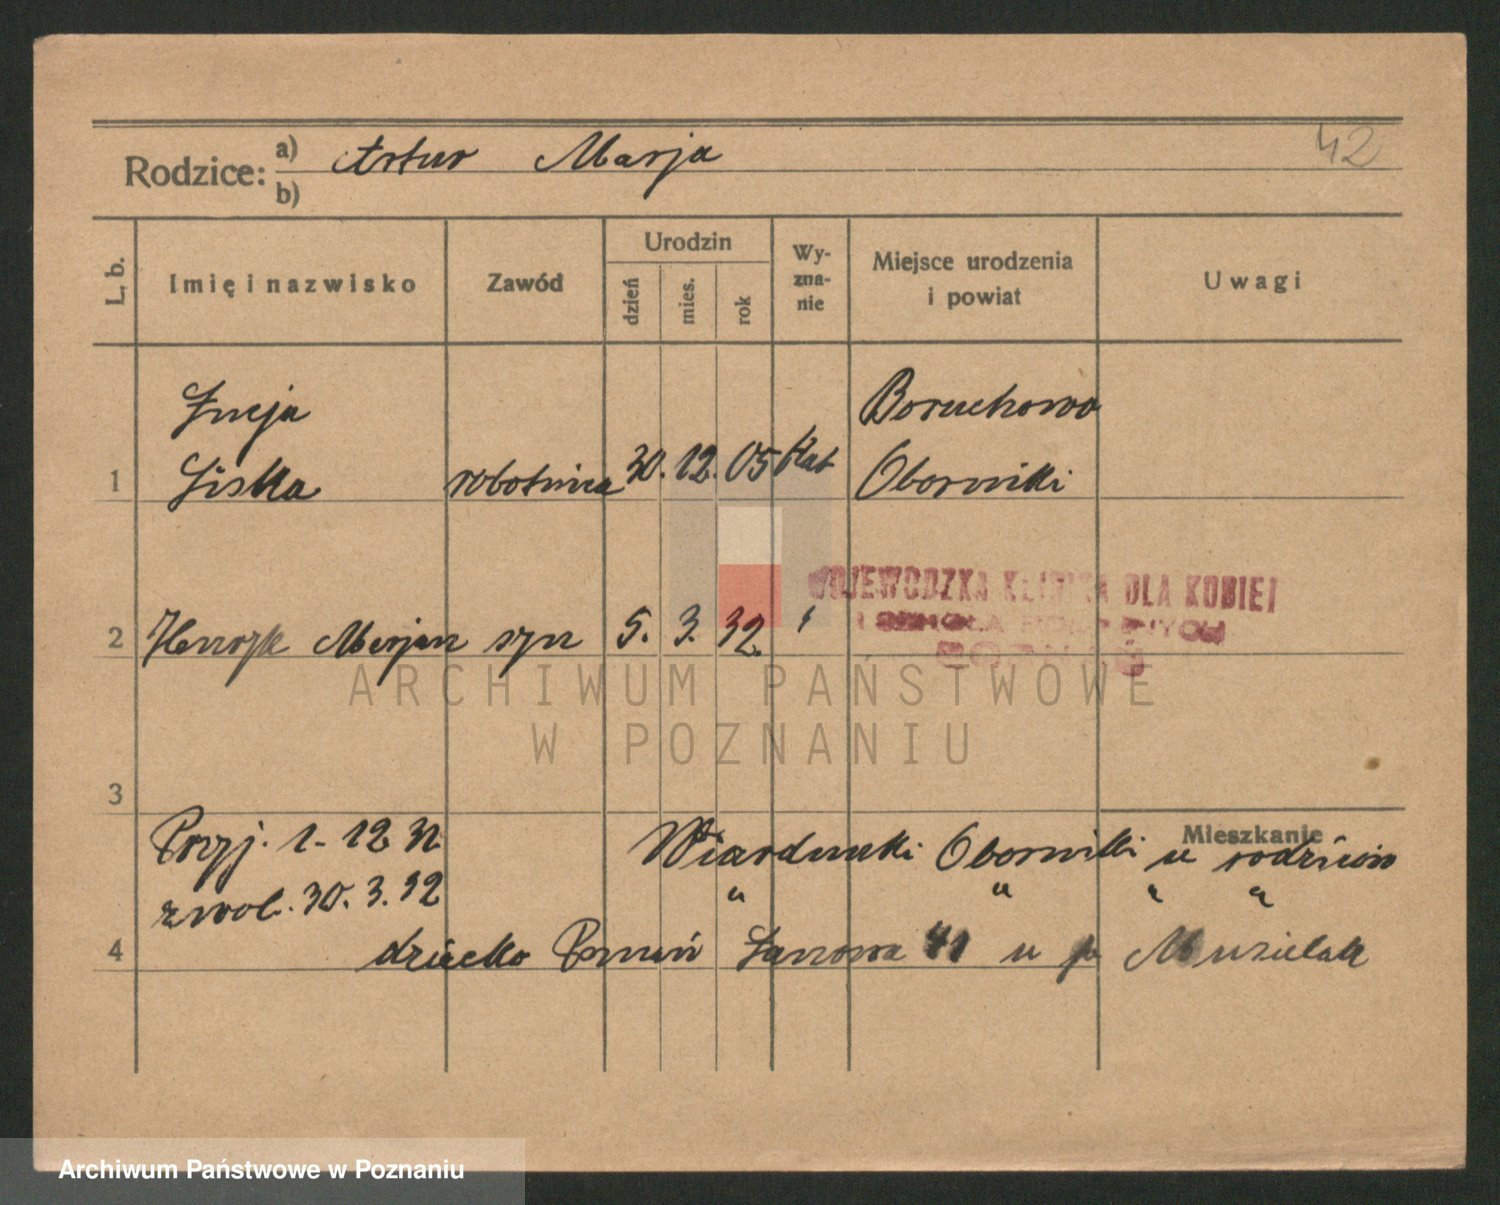 42
Rodzice: a) Artur Marja
b)
L. b. Imię i nazwisko Zawód Urodzin dzień mies. rok Wy-zna-nie Miejsce urodzenia i powiat Uwagi
Łucja Boruchowo
1 Liska robotnica 30. 12. 05 kat Oborniki
WOJEWÓDZKA KLINIKA DLA KOBIET
I SZKOŁA POŁOŻNYCH
2 Henryk Marjan syn 5. 3. 32.
ARCHIWUM PAŃSTWOWE
W POZNANIU
3
Mieszkanie
Przyj. 1-12 31 Wiardunki Oborniki u rodziców
zwol. 30. 3. 32 " " " "
4 dziecko Poznań Łanowa 41 u p Musielak
Archiwum Państwowe w Poznaniu